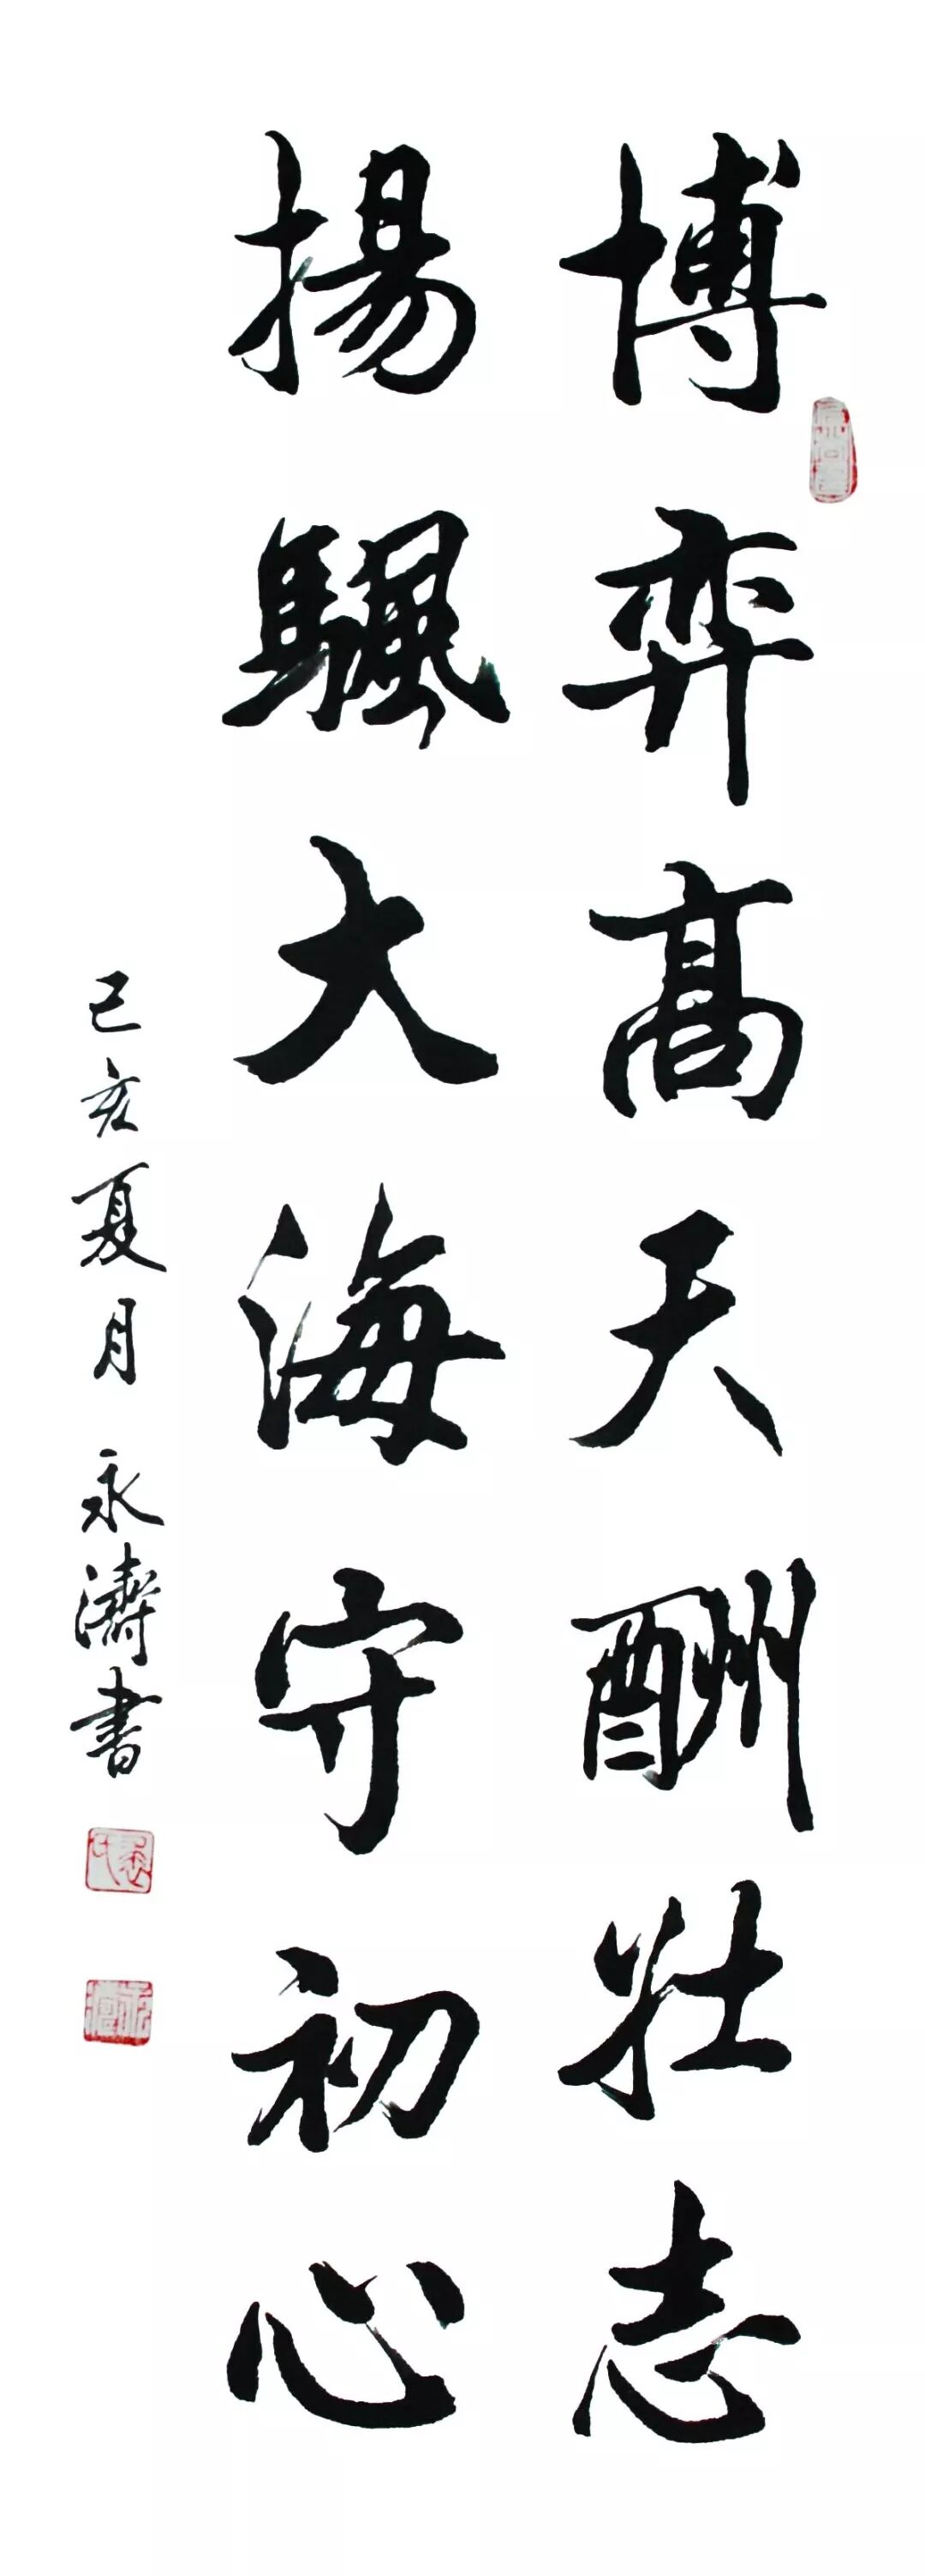 博弈高天酬壮志
揚颿大海守初心
己亥夏月 永濤書